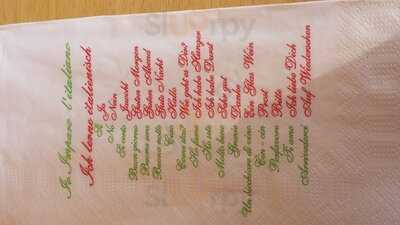 Io Imparo l'italiano
Ich lerne italienisch
Si Ja
No Nein
Ti amo
Buon giorno Guten Morgen
Buona sera Guten Abend
Buona notte Gute Nacht
Ciao Hallo
Come stai? Wie geht es Dir?
Ho fame Ich habe Hunger
Ho sete Ich habe Durst
Molto bene Sehr gut
Grazie Danke
Un bicchiere di vino Ein Glas Wein
Cin - cin Prost
Prego Bitte
Ti amo Ich liebe Dich
Arrivederci Auf Wiedersehen
Sluurpy